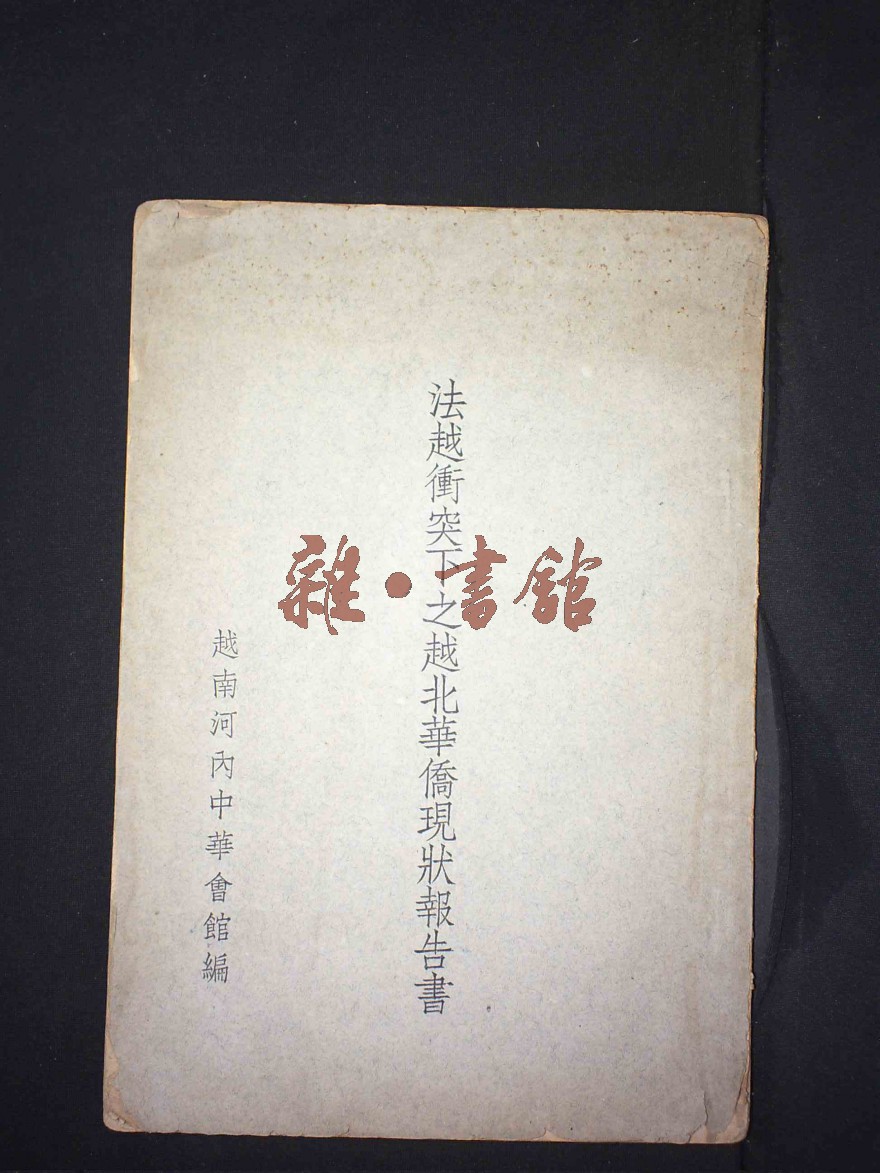 法越衝突下之越北華僑現狀報告書
越南河內中華會館編
雜·書館